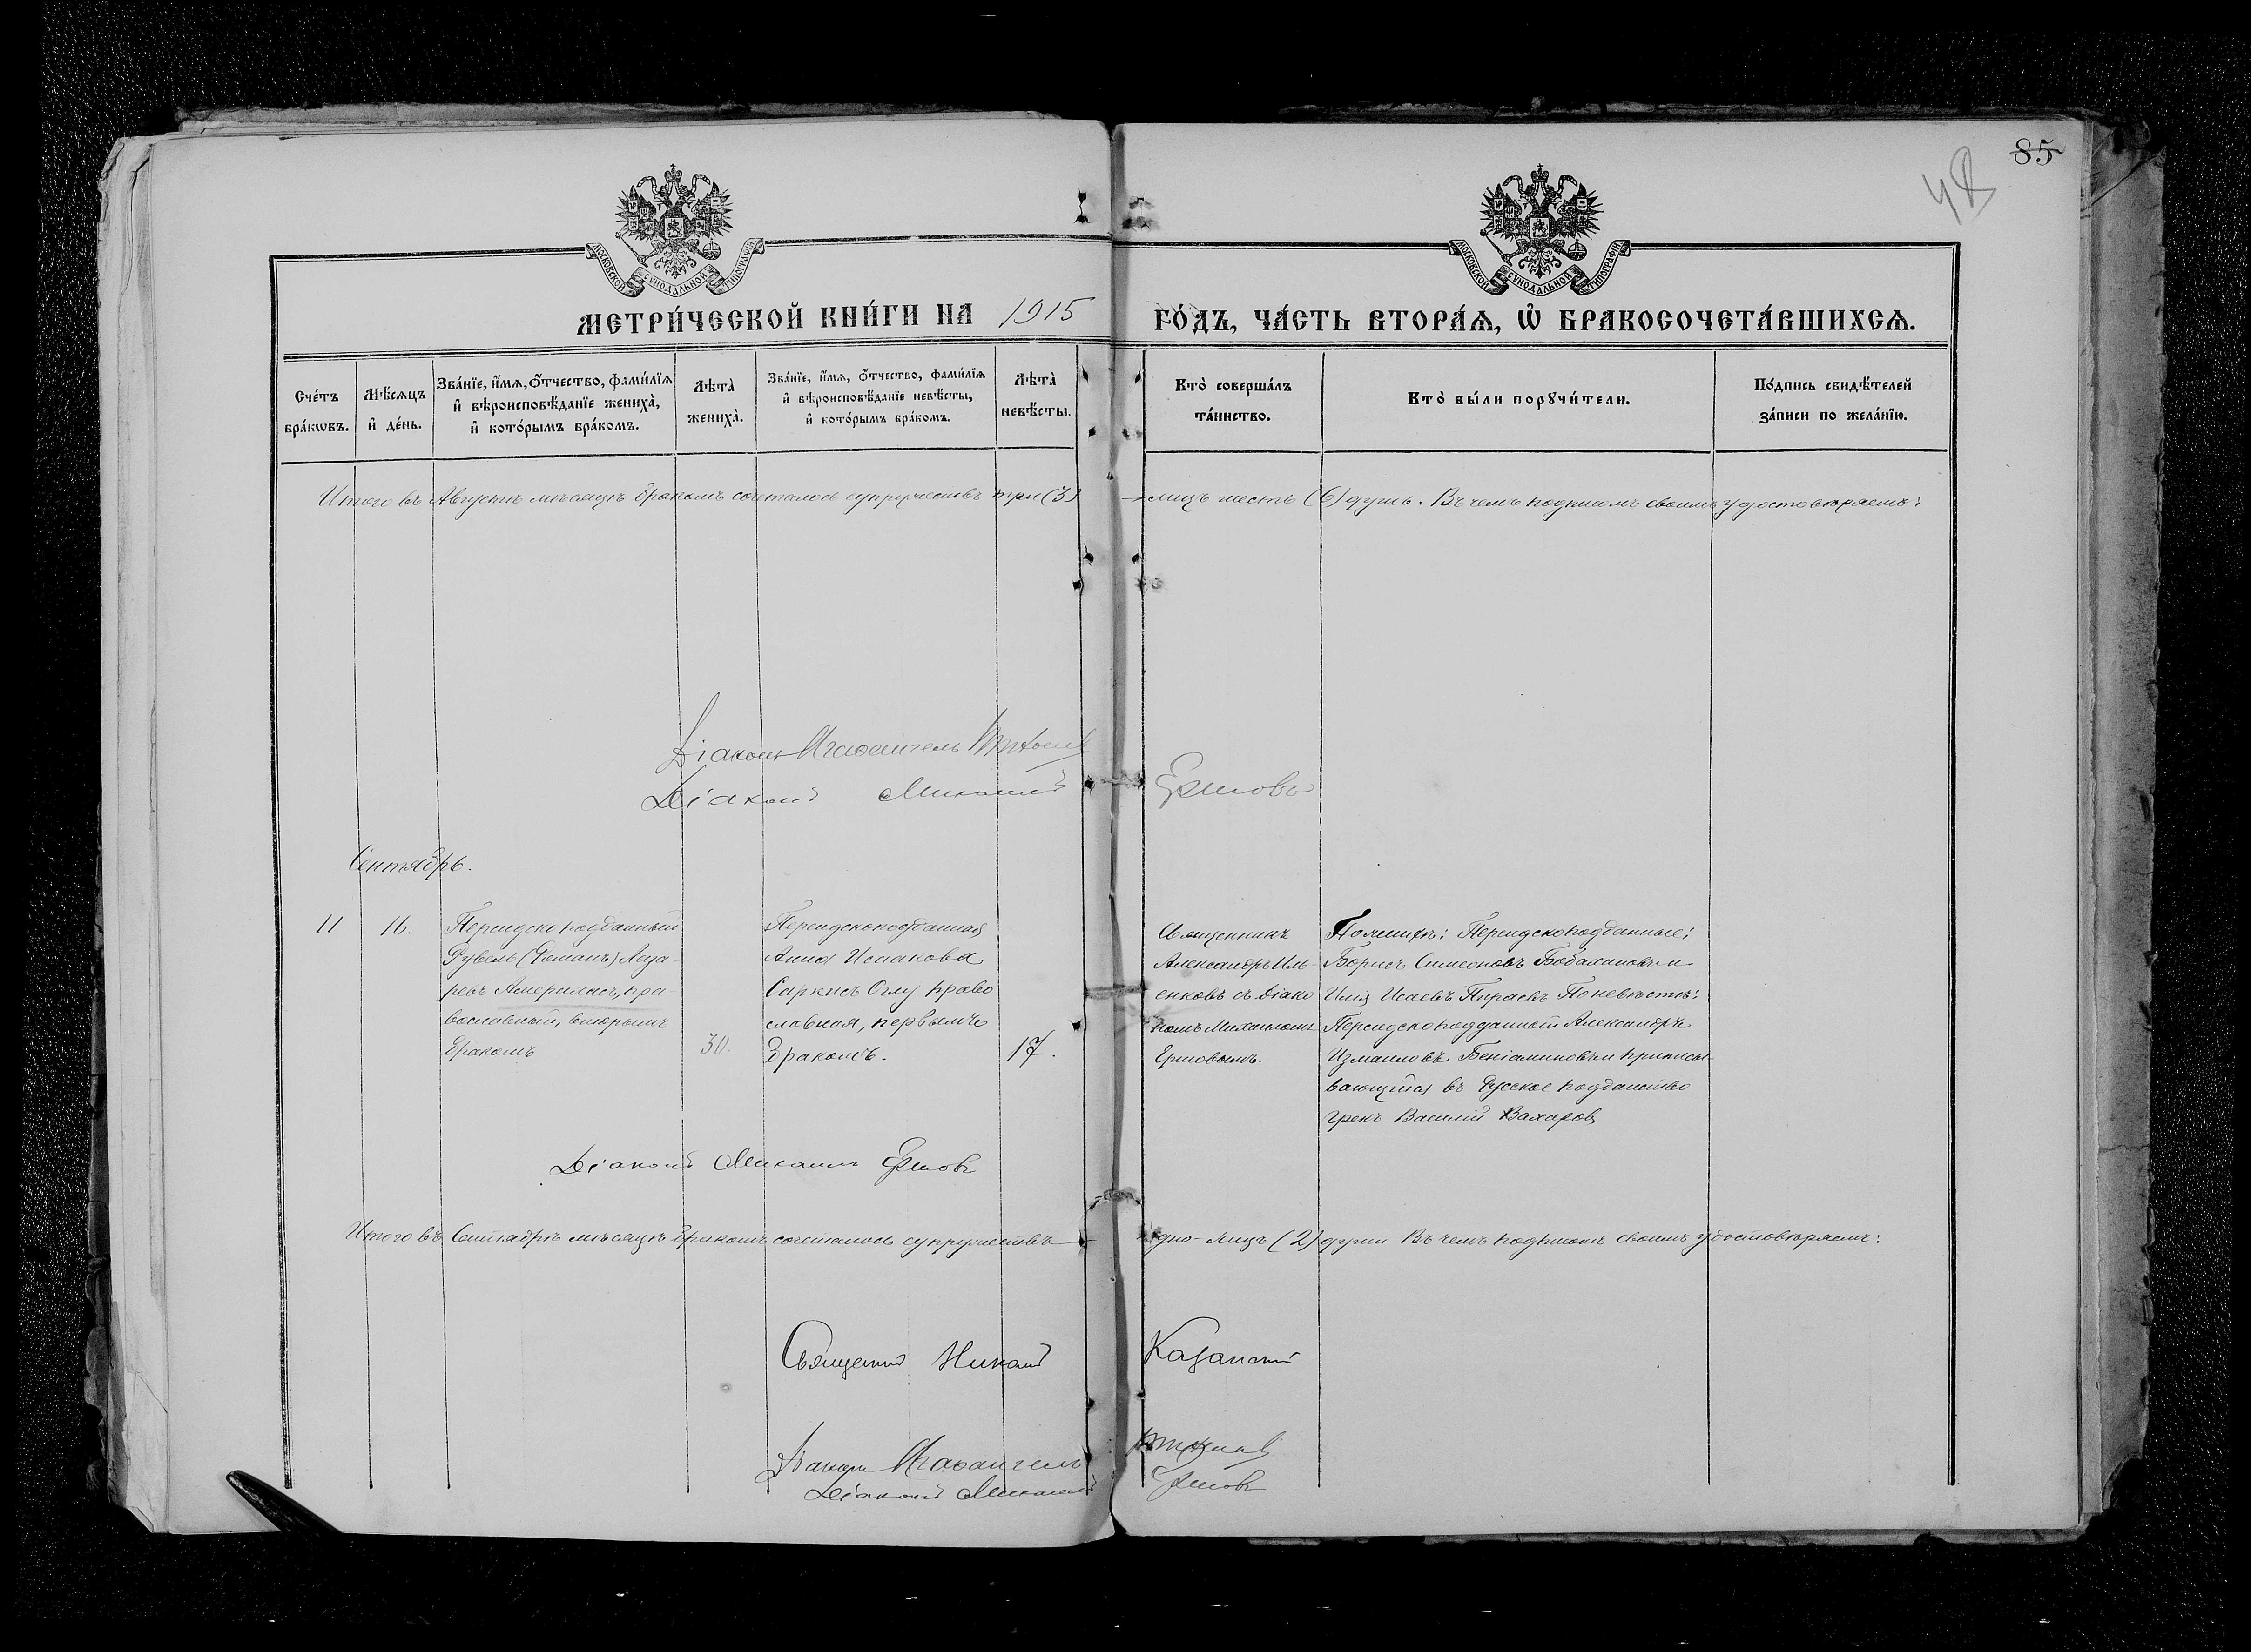 85
48
МОСКОВСКОЙ СѴНОДАЛЬНОЙ ТИПОГРАФІИ
МОСКОВСКОЙ СѴНОДАЛЬНОЙ ТИПОГРАФІИ
МЕТРИ́ЧЕСКОЙ КНИ́ГИ НА 1915 ГО́ДЪ, ЧА́СТЬ ВТОРА́Ѧ, Ѡ҆ БРАКОСОЧЕТА́ВШИХСѦ.
Сче́тъ
бра́кѡвъ.
Мѣ́сѧцъ
и҆ де́нь.
Зва́нїе, и҆́мѧ, ѻ҆́тчество, фами́лїѧ
и҆ вѣроисповѣ́данїе жениха̀,
и҆ кото́рымъ бра́комъ.
Лѣта̀
жениха̀.
Зва́нїе, и҆́мѧ, ѻ҆́тчество, фами́лїѧ
и҆ вѣроисповѣ́данїе невѣ́сты,
и҆ кото́рымъ бра́комъ.
Лѣта̀
невѣ́сты.
Кто̀ соверша́лъ
та́инство.
Кто̀ бы́ли порꙋчи́тели.
По́дпись свидѣ́телей
за́писи по жела́нїю.
Итого въ Августѣ мѣсяцѣ бракомъ сочеталось супружествъ три (3) – лицъ шесть (6) душъ. Въ чемъ подписомъ своимъ удостовѣряемъ:
Діаконъ
Діаконъ Михаилъ Ершовъ
Сентябрь.
11
16.
Персидско подданный
Рувель (Романъ) Лаза-
ревъ пра-
вославный, вторымъ
бракомъ
30.
Персидскоподданная
Анна Исаакова
Саркисъ Оглу право
славная, первымъ
бракомъ.
17.
Священникъ
Александръ Иль-
енковъ съ діако
номъ Михаиломъ
Ершовымъ.
По женихѣ: Персидскоподданные:
Борисъ Симеоновъ Бабахановъ и
Илія Исаевъ Пираевъ По невѣстѣ:
Персидскоподданный Александръ
Измаиловъ Беніаминовъ и приписы-
вающійся въ Русское подданство
грекъ Василій
Діаконъ Михаилъ Ершовъ
Итого въ Сентябрѣ мѣсяцѣ бракомъ сочеталось супружествъ – одно – лицъ (2) души Въ чемъ подписомъ своимъ удостовѣряемъ:
Священникъ Казанскій
Діаконъ
Діаконъ Михаилъ Ершовъ